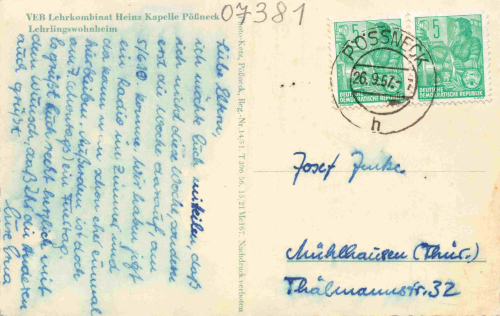 VEB Lehrkombinat Heinz Kapelle Pößneck
Lehrlingswohnheim
07381
Liebe Eltern,
ich möchte Euch mitteilen, daß
ich nicht diese Woche, sondern
erst die Woche darauf, am
5/6.10 komme. Wir haben jetzt
ein Radio im Zimmer und
da kann man schon eher einmal
hierbleiben. Außerdem ist doch
am 7.
es grüßt Euch recht herzlich mit
dem Wunsch, daß Ihr die anderen
auch grüßt. Eure
Photo-Kotz, Pößneck, Reg.-Nr. 14/51. T 396/56. 15/21 Me 167. Nachdruck verboten
5
DEUTSCHE
DEMOKRATISCHE REPUBLIK
5
DEUTSCHE
DEMOKRATISCHE REPUBLIK
PÖSSNECK
26.9.57
h
Josef
Mühlhausen (Thür.)
Thälmannstr. 32